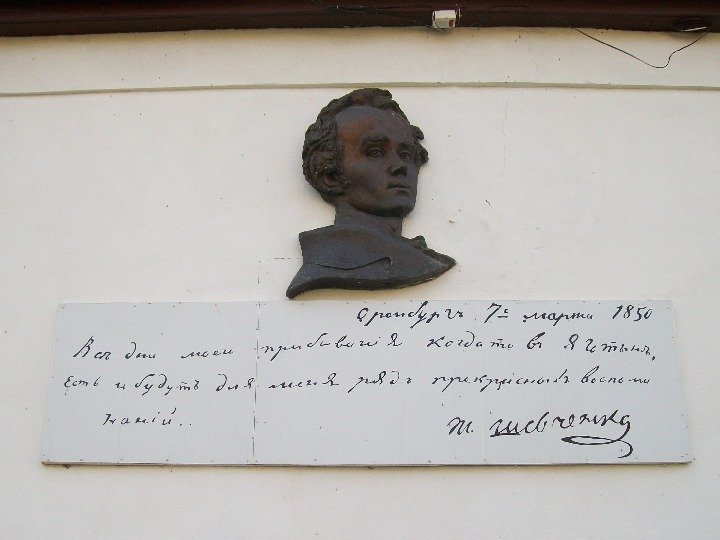 Оренбургъ 7е марта 1850
Всѣ дни моего прибованія когда то въ Яготынѣ,
есть и будутъ для меня рядъ прекрасныхъ воспоми
наній..
Т. Шевченко